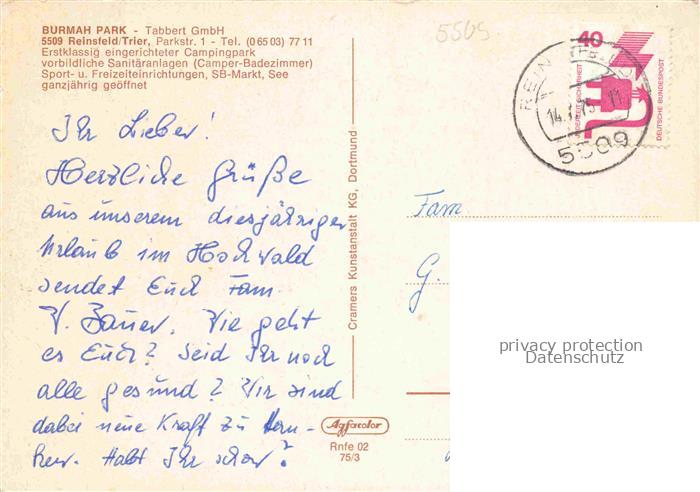 BURMAH PARK - Tabbert GmbH
5509 Reinsfeld/Trier, Parkstr. 1 - Tel. (0 65 03) 77 11
Erstklassig eingerichteter Campingpark
vorbildliche Sanitäranlagen (Camper-Badezimmer)
Sport- u. Freizeiteinrichtungen, SB-Markt, See
ganzjährig geöffnet
Ihr Lieben!
Herzliche Grüße
aus unserem diesjährigen
Urlaub im Hochwald
sendet Euch Fam
W. Bauer. Wie geht
es Euch? Seid Ihr noch
alle gesund? Wir sind
dabei neue Kraft zu tan-
ken. Habt Ihr schon?
Cramers Kunstanstalt KG, Dortmund
Agfacolor
Rnfe 02
75/3
5509
40
JEDERZEIT SICHERHEIT
DEUTSCHE BUNDESPOST
5509
Fam.
G.
privacy protection
Datenschutz